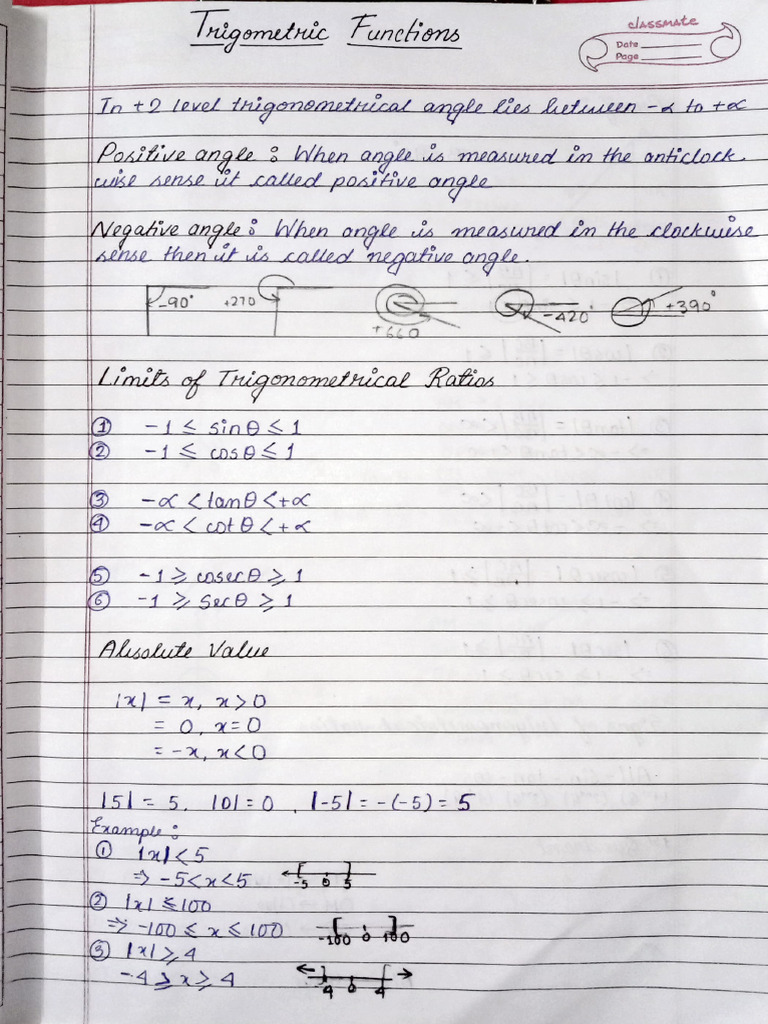 Trigometric Functions
classmate
Date
Page
In +2 level trigonometrical angle lies between -α to +α
Positive angle : When angle is measured in the anticlock
wise sense it called positive angle
Negative angle : When angle is measured in the clockwise
sense then it is called negative angle.
-90° +270 +660 -420° +390°
Limits of Trigonometrical Ratios
① -1 ≤ sinθ ≤ 1
② -1 ≤ cosθ ≤ 1
③ -α < tanθ < +α
④ -α < cotθ < +α
⑤ -1 ≥ cosecθ ≥ 1
⑥ -1 ≥ Secθ ≥ 1
Absolute Value
|x| = x, x>0
= 0, x=0
= -x, x<0
|5| = 5, |0| = 0, |-5| = -(-5) = 5
Example :
① |x| < 5
⇒ -5 < x < 5 -5 0 5
② |x| ≤ 100
⇒ -100 ≤ x ≤ 100 -100 0 100
③ |x| ≥ 4
-4 ≥ x ≥ 4 4 0 4